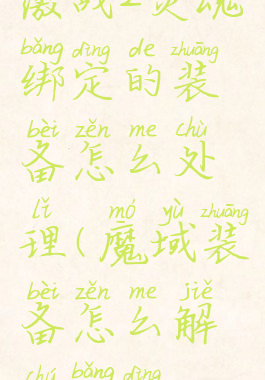 激战2灵魂
bǎng dìng de zhuāng
绑定的装
bèi zěn me chù
备怎么处
lǐ mó yù zhuāng
理(魔域装
bèi zěn me jiě
备怎么解
chú bǎng dìng